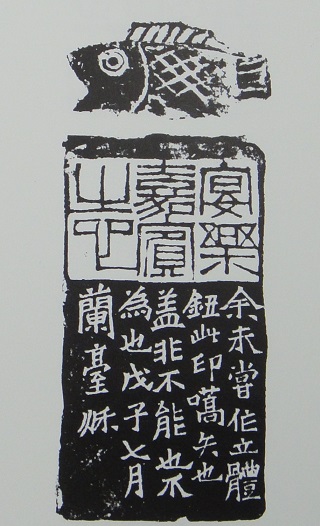 宴樂
嘉賓
之心
余未嘗作立體
鈕此印嚆矢也
盖非不能也不
為也戊子七月
蘭臺